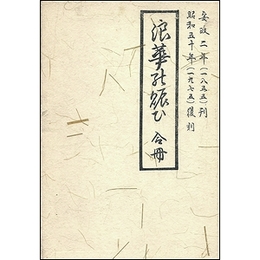 安政二年(一八五五)刊
昭和五十年(一九七五)復刻
浪華の賑ひ 合冊